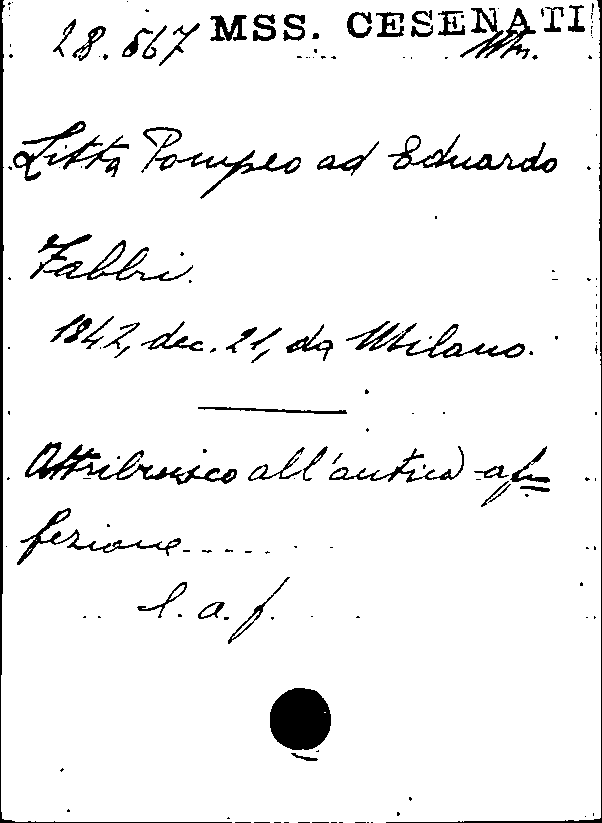 28.567 MSS. CESENATI
Litta Pompeo ad Eduardo
Fabbri.
1842, dec. 21, da Milano.
Attribuisco all'antica af=
fezione......
l. a. f.